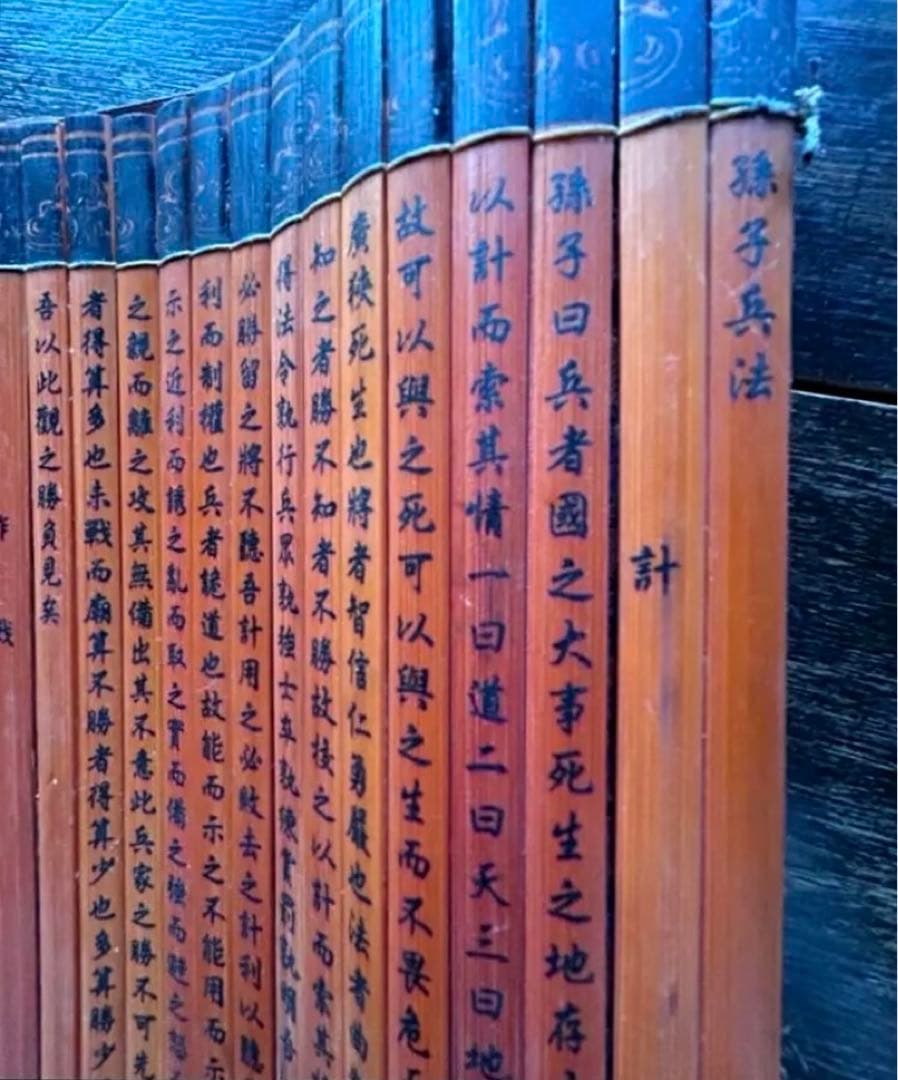 孫子兵法
計
孫子曰兵者國之大事死生之地存
以計而索其情一曰道二曰天三曰地
故可以與之死可以與之生而不畏危
廣狹死生也將者智信仁勇嚴也法者曲
知之者勝不知者不勝故校之以計而索其
得法令孰行兵眾孰強士卒孰練賞罰孰明吾
必勝留之將不聽吾計用之必敗去之計利以聽
利而制權也兵者詭道也故能而示之不能用而示
示之近利而誘之亂而取之實而備之強而避之怒
之親而離之攻其無備出其不意此兵家之勝不可先
者得算多也未戰而廟算不勝者得算少也多算勝少
吾以此觀之勝負見矣
作
戰